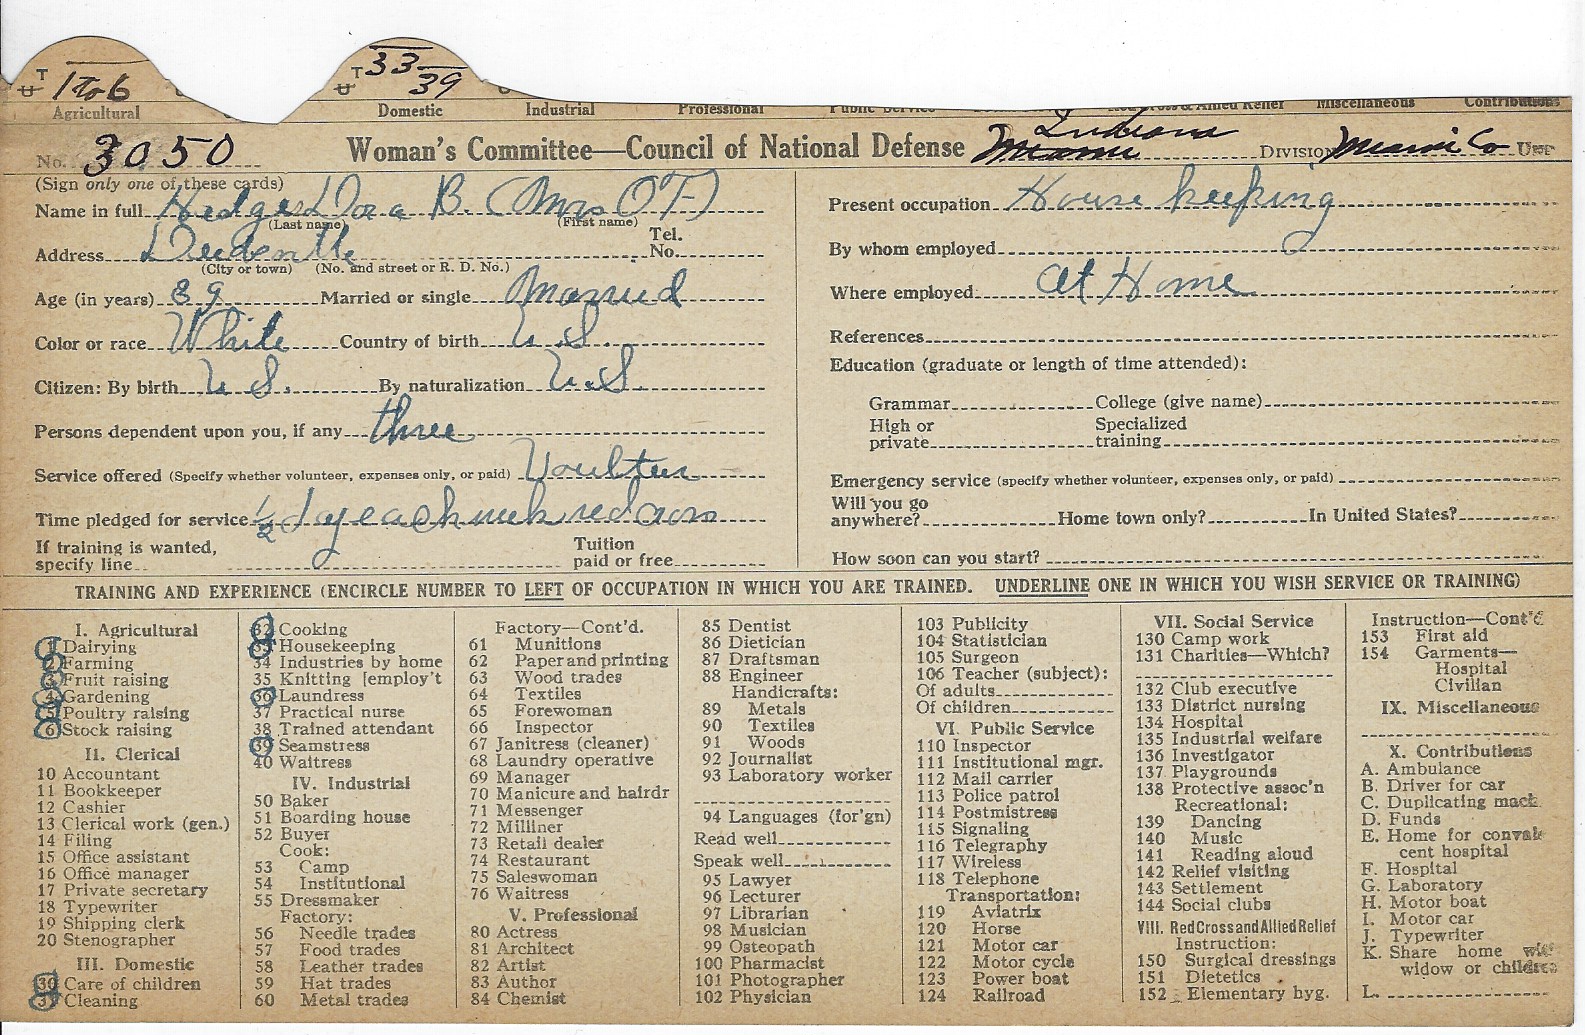 T 1 to 6 T 33-39
Agricultural Domestic Industrial Professional Public Service Red Cross & Allied Relief Miscellaneous Contributions
No. 3050 Woman's Committee—Council of National Defense Miami Indiana DIVISION Miami Co USE
(Sign only one of these cards)
Name in full Hedges Dora B. (Mrs O F)
(Last name) (First name)
Tel.
Address No.
(City or town) (No. and street or R. D. No.)
Age (in years) 39 Married or single Married
Color or race White Country of birth U.S.
Citizen: By birth U S. By naturalization U.S.
Persons dependent upon you, if any three
Service offered (Specify whether volunteer, expenses only, or paid) Voulteer
Time pledged for service 1/2 day each week red cross
If training is wanted, Tuition
specify line paid or free
Present occupation House keeping
By whom employed
Where employed at Home
References
Education (graduate or length of time attended):
Grammar College (give name)
High or Specialized
private training
Emergency service (specify whether volunteer, expenses only, or paid)
Will you go
anywhere? Home town only? In United States?
How soon can you start?
TRAINING AND EXPERIENCE (ENCIRCLE NUMBER TO LEFT OF OCCUPATION IN WHICH YOU ARE TRAINED. UNDERLINE ONE IN WHICH YOU WISH SERVICE OR TRAINING)
I. Agricultural
1 Dairying
2 Farming
3 Fruit raising
4 Gardening
5 Poultry raising
6 Stock raising
II. Clerical
10 Accountant
11 Bookkeeper
12 Cashier
13 Clerical work (gen.)
14 Filing
15 Office assistant
16 Office manager
17 Private secretary
18 Typewriter
19 Shipping clerk
20 Stenographer
III. Domestic
30 Care of children
31 Cleaning
32 Cooking
33 Housekeeping
34 Industries by home
35 Knitting [employ't
36 Laundress
37 Practical nurse
38 Trained attendant
39 Seamstress
40 Waitress
IV. Industrial
50 Baker
51 Boarding house
52 Buyer
Cook:
53 Camp
54 Institutional
55 Dressmaker
Factory:
56 Needle trades
57 Food trades
58 Leather trades
59 Hat trades
60 Metal trades
Factory—Cont'd.
61 Munitions
62 Paper and printing
63 Wood trades
64 Textiles
65 Forewoman
66 Inspector
67 Janitress (cleaner)
68 Laundry operative
69 Manager
70 Manicure and hairdr
71 Messenger
72 Milliner
73 Retail dealer
74 Restaurant
75 Saleswoman
76 Waitress
V. Professional
80 Actress
81 Architect
82 Artist
83 Author
84 Chemist
85 Dentist
86 Dietician
87 Draftsman
88 Engineer
Handicrafts:
89 Metals
90 Textiles
91 Woods
92 Journalist
93 Laboratory worker
94 Languages (for'gn)
Read well
Speak well
95 Lawyer
96 Lecturer
97 Librarian
98 Musician
99 Osteopath
100 Pharmacist
101 Photographer
102 Physician
103 Publicity
104 Statistician
105 Surgeon
106 Teacher (subject):
Of adults
Of children
VI. Public Service
110 Inspector
111 Institutional mgr.
112 Mail carrier
113 Police patrol
114 Postmistress
115 Signaling
116 Telegraphy
117 Wireless
118 Telephone
Transportation:
119 Aviatrix
120 Horse
121 Motor car
122 Motor cycle
123 Power boat
124 Railroad
VII. Social Service
130 Camp work
131 Charities—Which?
132 Club executive
133 District nursing
134 Hospital
135 Industrial welfare
136 Investigator
137 Playgrounds
138 Protective assoc'n
Recreational:
139 Dancing
140 Music
141 Reading aloud
142 Relief visiting
143 Settlement
144 Social clubs
VIII. Red Cross and Allied Relief
Instruction:
150 Surgical dressings
151 Dietetics
152 Elementary hyg.
Instruction—Cont'd
153 First aid
154 Garments—
Hospital
Civilian
IX. Miscellaneous
X. Contributions
A. Ambulance
B. Driver for car
C. Duplicating mach
D. Funds
E. Home for convales
cent hospital
F. Hospital
G. Laboratory
H. Motor boat
I. Motor car
J. Typewriter
K. Share home with
widow or children
L.